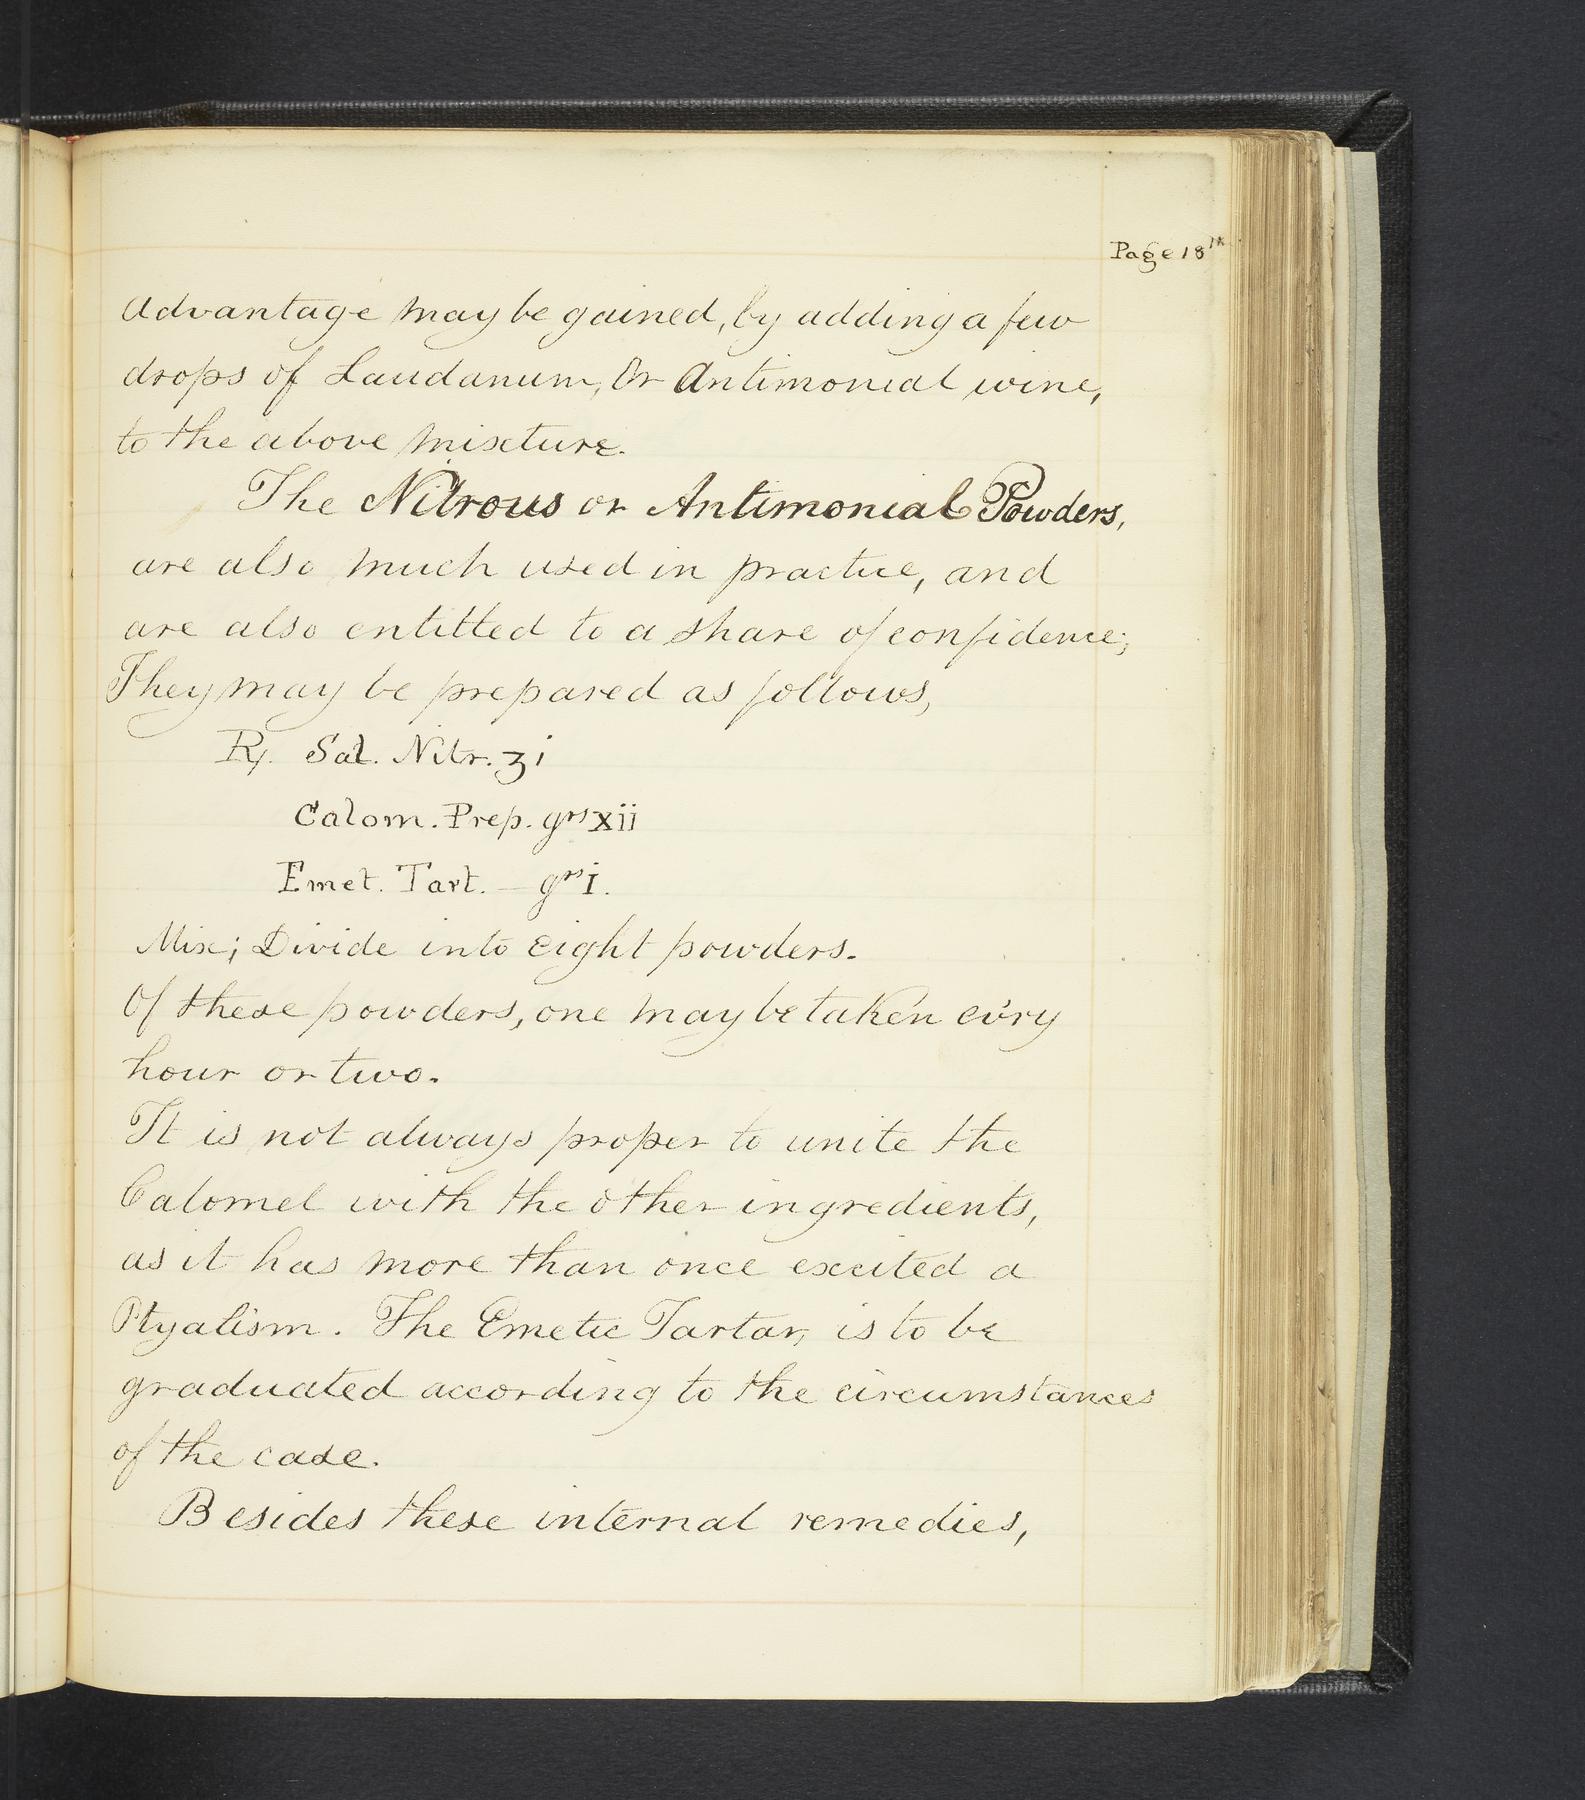 Page 18th
Advantage may be gained, by adding a few
drops of Laudanum, Or Antimonial wine,
to the above mixture.
The Nitrous or Antimonial Powders,
are also much used in practice, and
are also entitled to a share of confidence;
They may be prepared as follows,
℞. Sal. Nitr. ʒi
Calom. Prep. grs xii
Emet. Tart. — grs i.
Mix; Divide into eight powders.
Of these powders, one may be taken ev'ry
hour or two.
It is not always proper to unite the
Calomel with the other ingredients,
as it has more than once excited a
Ptyalism. The Emetic Tartar, is to be
graduated according to the circumstances
of the case.
Besides these internal remedies,